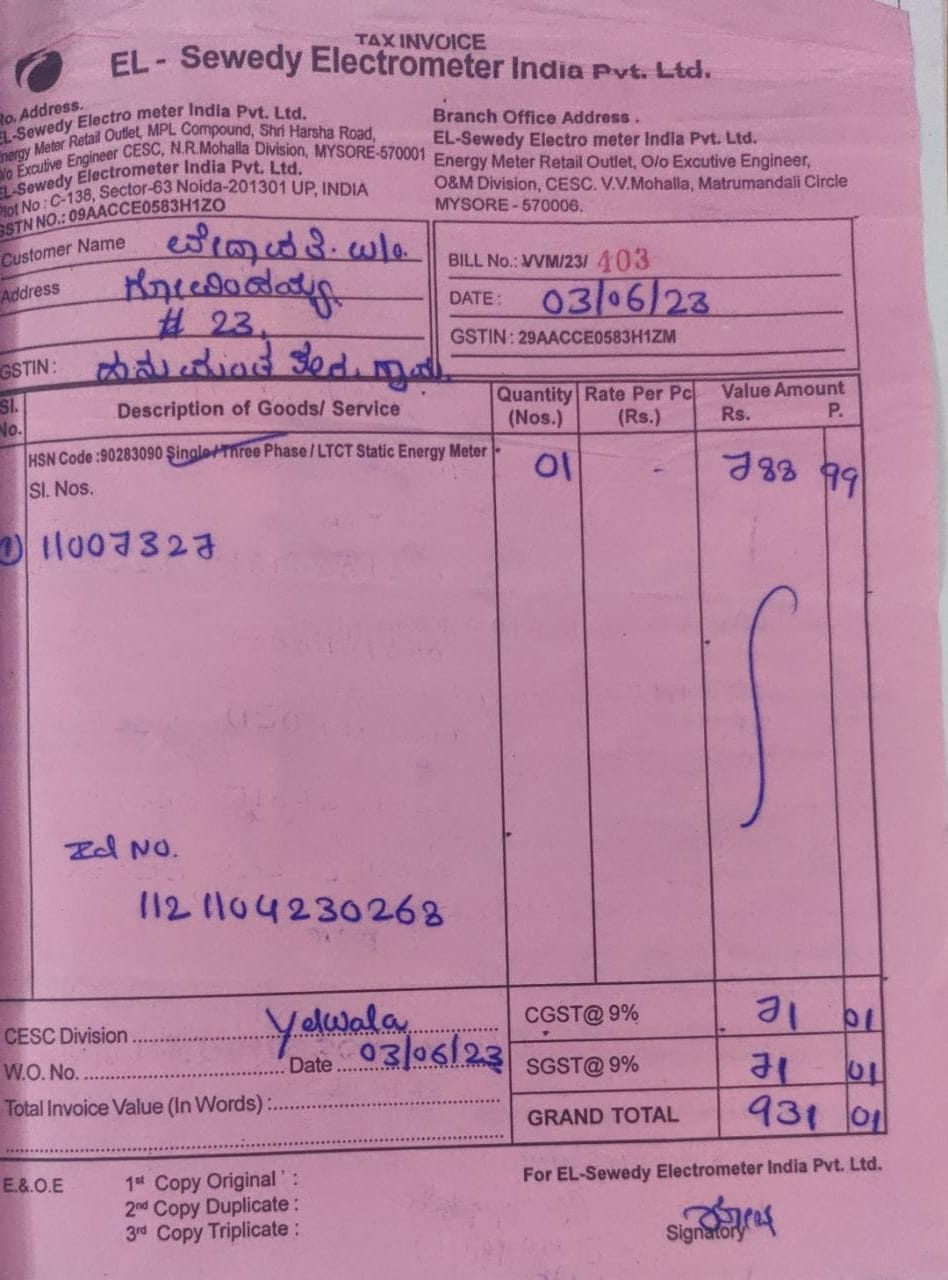 TAX INVOICE
EL - Sewedy Electrometer India Pvt. Ltd.
Ro. Address.
EL-Sewedy Electro meter India Pvt. Ltd.
Energy Meter Retail Outlet, MPL Compound, Shri Harsha Road,
O/o Excutive Engineer CESC, N.R.Mohalla Division, MYSORE-570001
EL-Sewedy Electrometer India Pvt. Ltd.
Plot No : C-138, Sector-63 Noida-201301 UP, INDIA
GSTN NO.: 09AACCE0583H1ZO
Branch Office Address .
EL-Sewedy Electro meter India Pvt. Ltd.
Energy Meter Retail Outlet, O/o Excutive Engineer,
O&M Division, CESC. V.V.Mohalla, Matrumandali Circle
MYSORE - 570006.
Customer Name W/o.
Address
# 23,
GSTIN :
BILL No.: VVM/23/ 403
DATE : 03/06/23
GSTIN : 29AACCE0583H1ZM
Sl. No. Description of Goods/ Service Quantity (Nos.) Rate Per Pc (Rs.) Value Amount Rs. P.
HSN Code :90283090 Single/Three Phase / LTCT Static Energy Meter 01 - 788 99
Sl. Nos.
1) 11007327
Id NO.
1121104230268
CESC Division Yelwala
W.O. No. Date 03/06/23
Total Invoice Value (In Words) :
CGST@ 9% 71 01
SGST@ 9% 71 01
GRAND TOTAL 931 01
E.&.O.E
1st Copy Original :
2nd Copy Duplicate :
3rd Copy Triplicate :
For EL-Sewedy Electrometer India Pvt. Ltd.
Signatory